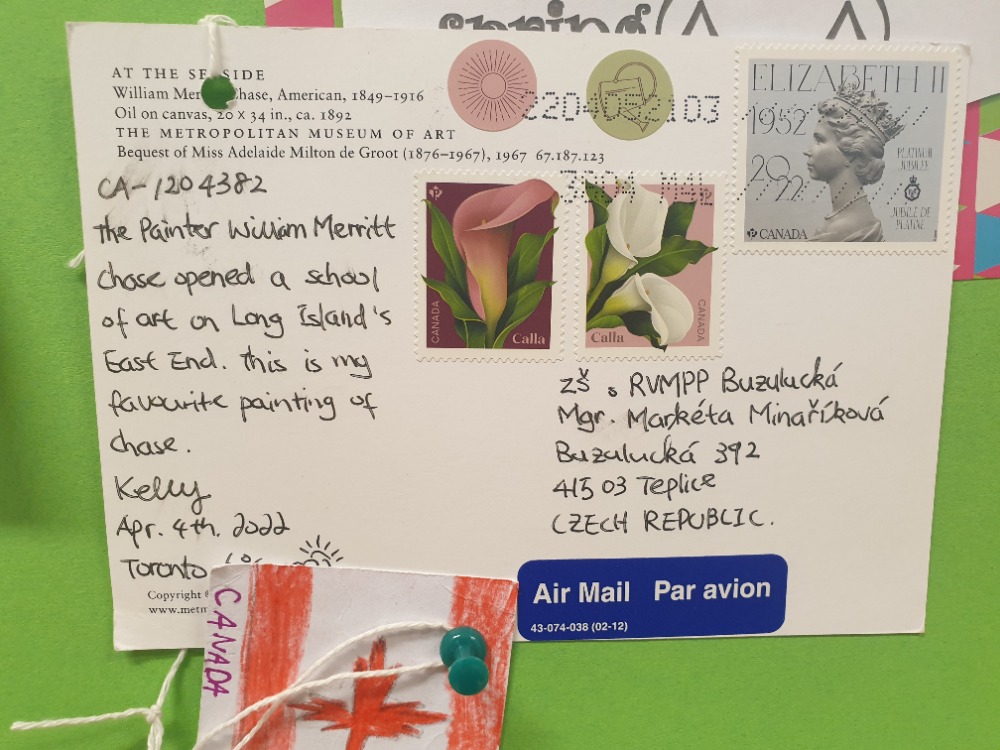 AT THE SEASIDE
William Merritt Chase, American, 1849–1916
Oil on canvas, 20 x 34 in., ca. 1892
THE METROPOLITAN MUSEUM OF ART
Bequest of Miss Adelaide Milton de Groot (1876–1967), 1967 67.187.123
CA-1204382
the Painter William Merritt
Chase opened a school
of art on Long Island's
East End. this is my
favourite painting of
Chase.
Kelly
Apr. 4th. 2022
Toronto
Copyright
www.metm
CANADA
Calla
Calla
CANADA
ELIZABETH II
1952
2022
PLATINUM
JUBILEE
JUBILÉ DE
PLATINE
CANADA
M4L
ZŠ a RVMPP Buzulucká
Mgr. Markéta Minaříková
Buzulucká 392
415 03 Teplice
CZECH REPUBLIC.
Air Mail Par avion
43-074-038 (02-12)
CANADA